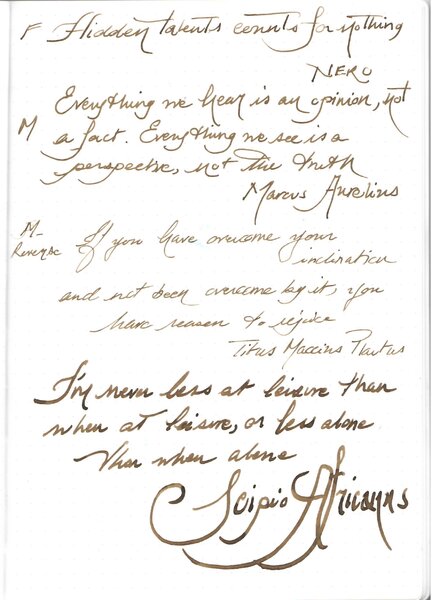 F Hidden talents counts for nothing
NERO
Everything we hear is an opinion, not
M a fact. Everything we see is a
perspective, not the truth
Marcus Aurelius
M- Reverse If you have overcome your
inclination
and not been overcome by it, you
have reason to rejoice
Titus Maccius Plautus
I'm never less at leisure than
when at leisure, or less alone
than when alone
Scipio Africanus